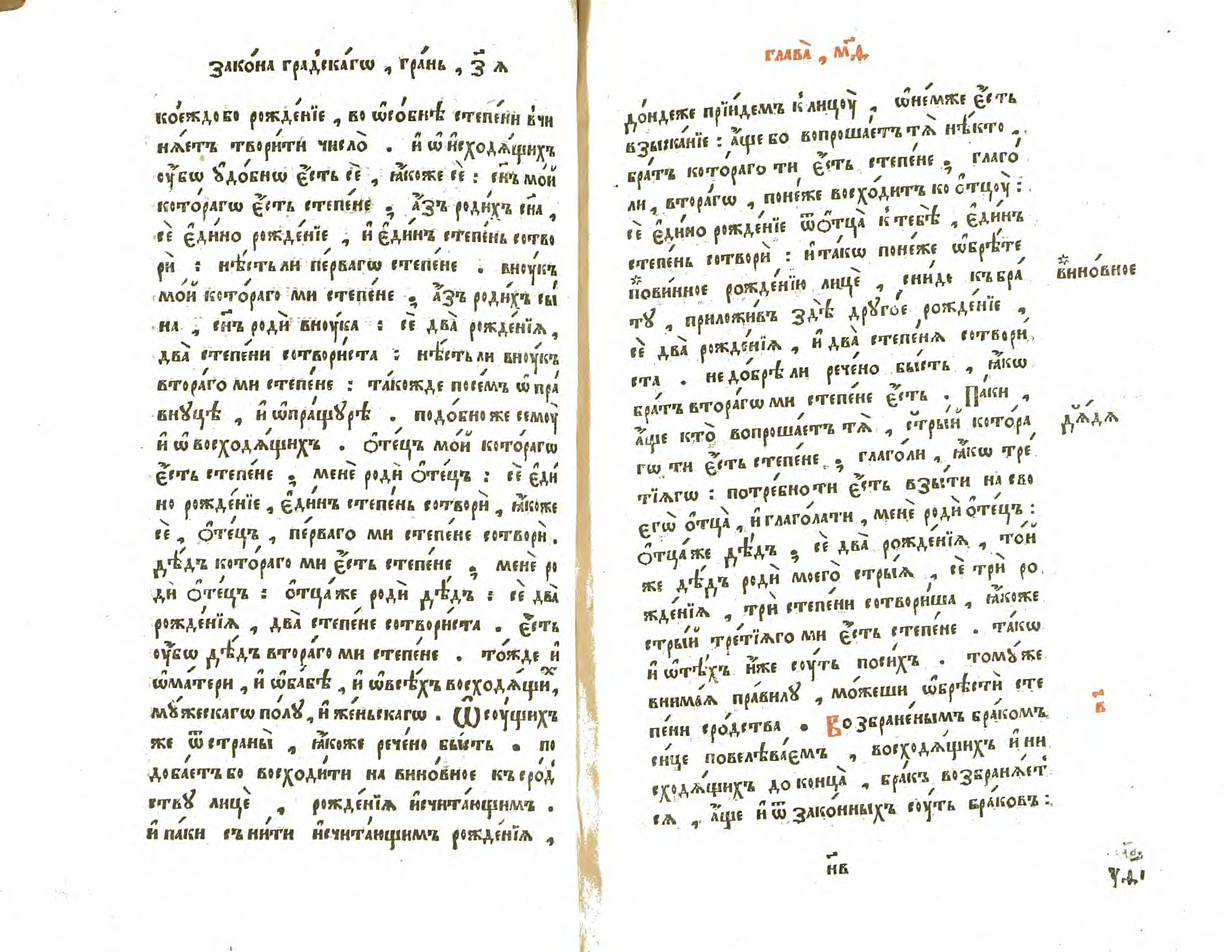 Зако́на гра́дскагѡ , гра́нь , з҃ я
ко́еждо бо рожде́нїе , во ѡ҆со́бнѣ степе́ни вчи
ня́етъ твори́ти число̀ . и҆ ѡ҆ и҆сходѧ́щихъ
оу҆́бѡ ᲂу҆до́бнѡ є҆́сть сѐ , ꙗ҆́коже сѐ : сн҃ъ мо́й
кото́рагѡ є҆́сть степе́не ; а҆́зъ роди́хъ сн҃а ,
сѐ є҆ди́но рожде́нїе , и҆ є҆ди́нъ степе́нь сотво
рѝ : нѣ́сть ли пе́рвагѡ степе́не . внꙋ́къ
мо́й кото́раго ми степе́не ; а҆́зъ роди́хъ сы́
на , сн҃ъ родѝ внꙋ́ка : сѐ два̀ рожде́нїѧ ,
два̀ степе́ни сотвори́ста : нѣ́сть ли внꙋ́къ
втора́го ми степе́не : та́кожде посе́мъ ѡ҆ пра́
внꙋцѣ , и҆ ѡ҆ пра́щꙋрѣ . подо́бно же семоу̀
и҆ ѡ҆ восходѧ́щихъ . ѻ҆те́цъ мо́й кото́рагѡ
є҆́сть степе́не ; менѐ родѝ ѻ҆те́цъ : сѐ є҆ди́
но рожде́нїе , є҆ди́нъ степе́нь сотворѝ , ꙗ҆́коже
сѐ , ѻ҆те́цъ , пе́рваго ми степе́не сотворѝ .
дѣ́дъ кото́раго ми є҆́сть степе́не ; менѐ ро
дѝ ѻ҆те́цъ : ѻ҆тца́ же родѝ дѣ́дъ : сѐ два̀
рожде́нїѧ , два̀ степе́не сотвори́ста . є҆́сть
оу҆́бѡ дѣ́дъ втора́го ми степе́не . то́жде и҆
ѡ҆ ма́тери , и҆ ѡ҆ ба́бѣ , и҆ ѡ҆ всѣ́хъ восходѧ́щиⷯ ,
мꙋ́жескагѡ по́лꙋ , и҆ же́ньскагѡ . Ѿ соу́щихъ
же ѿ страны̀ , ꙗ҆́коже рече́но бы́сть . по
доба́етъ бо восходи́ти на вино́вное къ сро́д
ствꙋ лицѐ , рожде́нїѧ и҆счита́ющимъ .
и҆ па́ки съни́ти и҆счита́ющимъ рожде́нїѧ ,
глава̀ , м҃д
до́ндеже прїи́демъ к лицоу̀ , ѡ҆ не́мже є҆́сть
взыска́нїе : а҆́ще бо вопроша́етъ тѧ̀ нѣ́кто ,
бра́тъ кото́раго ти є҆́сть степе́не ; глаго́
ли , втора́гѡ , поне́же восхо́дитъ ко ѻ҆тцоу̀ :
сѐ є҆ди́но рожде́нїе ѿ ѻ҆тца̀ к тебѣ̀ , є҆ди́нъ
степе́нь сотворѝ : и҆ та́кѡ поне́же ѡ҆брѣ́те
*пови́нное рожде́нїю лицѐ , сни́де къ бра́
тꙋ , приложи́въ здѣ̀ дрꙋго́е рожде́нїе ,
сѐ два̀ рожде́нїѧ , и҆ два̀ степе́нѧ сотвори́
ста . не до́брѣ ли рече́но бы́сть , ꙗ҆́кѡ
бра́тъ втора́гѡ ми степе́не є҆́сть . Па́ки ,
а҆́ще кто̀ вопроша́етъ тѧ̀ , стры́й кото́ра
гѡ ти є҆́сть степе́не ; глаго́ли , ꙗ҆́кѡ тре́
тїѧгѡ : потре́бно ти є҆́сть взы́ти на сво
егѡ̀ ѻ҆тца̀ , и҆ глаго́лати , менѐ родѝ ѻ҆те́цъ :
ѻ҆тца́ же дѣ́дъ ; сѐ два̀ рожде́нїѧ , то́й
же дѣ́дъ родѝ моего̀ стры́ѧ , сѐ трѝ ро
жде́нїѧ , трѝ степе́ни сотвори́ша , ꙗ҆́коже
стры́й тре́тїѧго ми є҆́сть степе́не . та́кѡ
и҆ ѡ҆ тѣ́хъ и҆̀же соу́ть по си́хъ . томꙋ́ же
внима́ѧ пра́вилꙋ , мо́жеши ѡ҆брѣстѝ сте
пе́ни сро́дства . Возбране́нымъ бра́комъ
си́це повелѣва́емъ , восходѧ́щихъ и҆ ни
сходѧ́щихъ до конца̀ , бра́къ возбранѧ́ет
сѧ , а҆́ще и҆ ѿ зако́нныхъ соу́ть бра́ковъ :
*вино́вное
дѧ́дѧ
в҃
н҃в